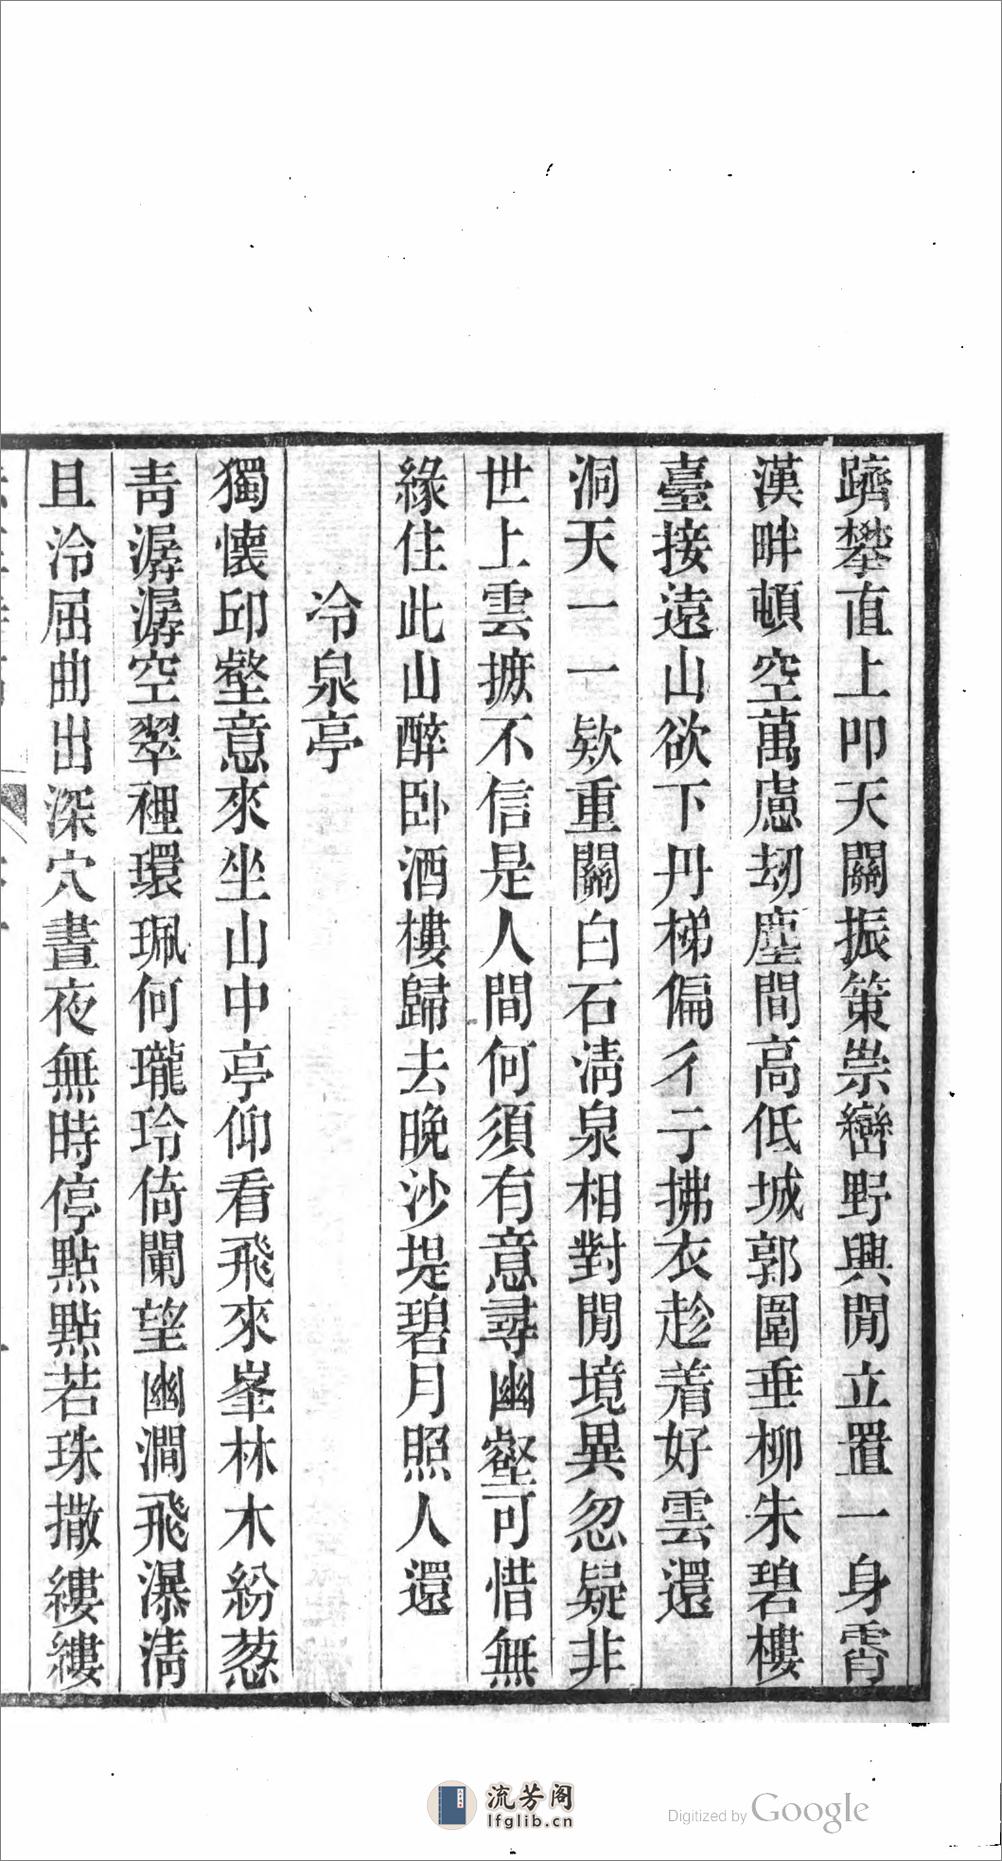 躋攀直上叩天關振策崇巒野興閒立置一身霄
漢畔頓空萬慮刼塵間高低城郭圍垂柳朱碧樓
臺接遠山欲下丹梯偏彳亍拂衣趁着好雲還
洞天一一欵重關白石淸泉相對閒境異忽疑非
世上雲摭不信是人間何須有意尋幽壑可惜無
緣住此山醉卧酒樓歸去晚沙堤碧月照人還
冷泉亭
獨懷邱壑意來坐山中亭仰看飛來峯林木紛葱
靑潺潺空翠裡環珮何瓏玲倚闌望幽澗飛瀑淸
且泠屈曲出深穴晝夜無時停點點若珠撒縷縷
流芳阁
lfglib.cn
Digitized by Google